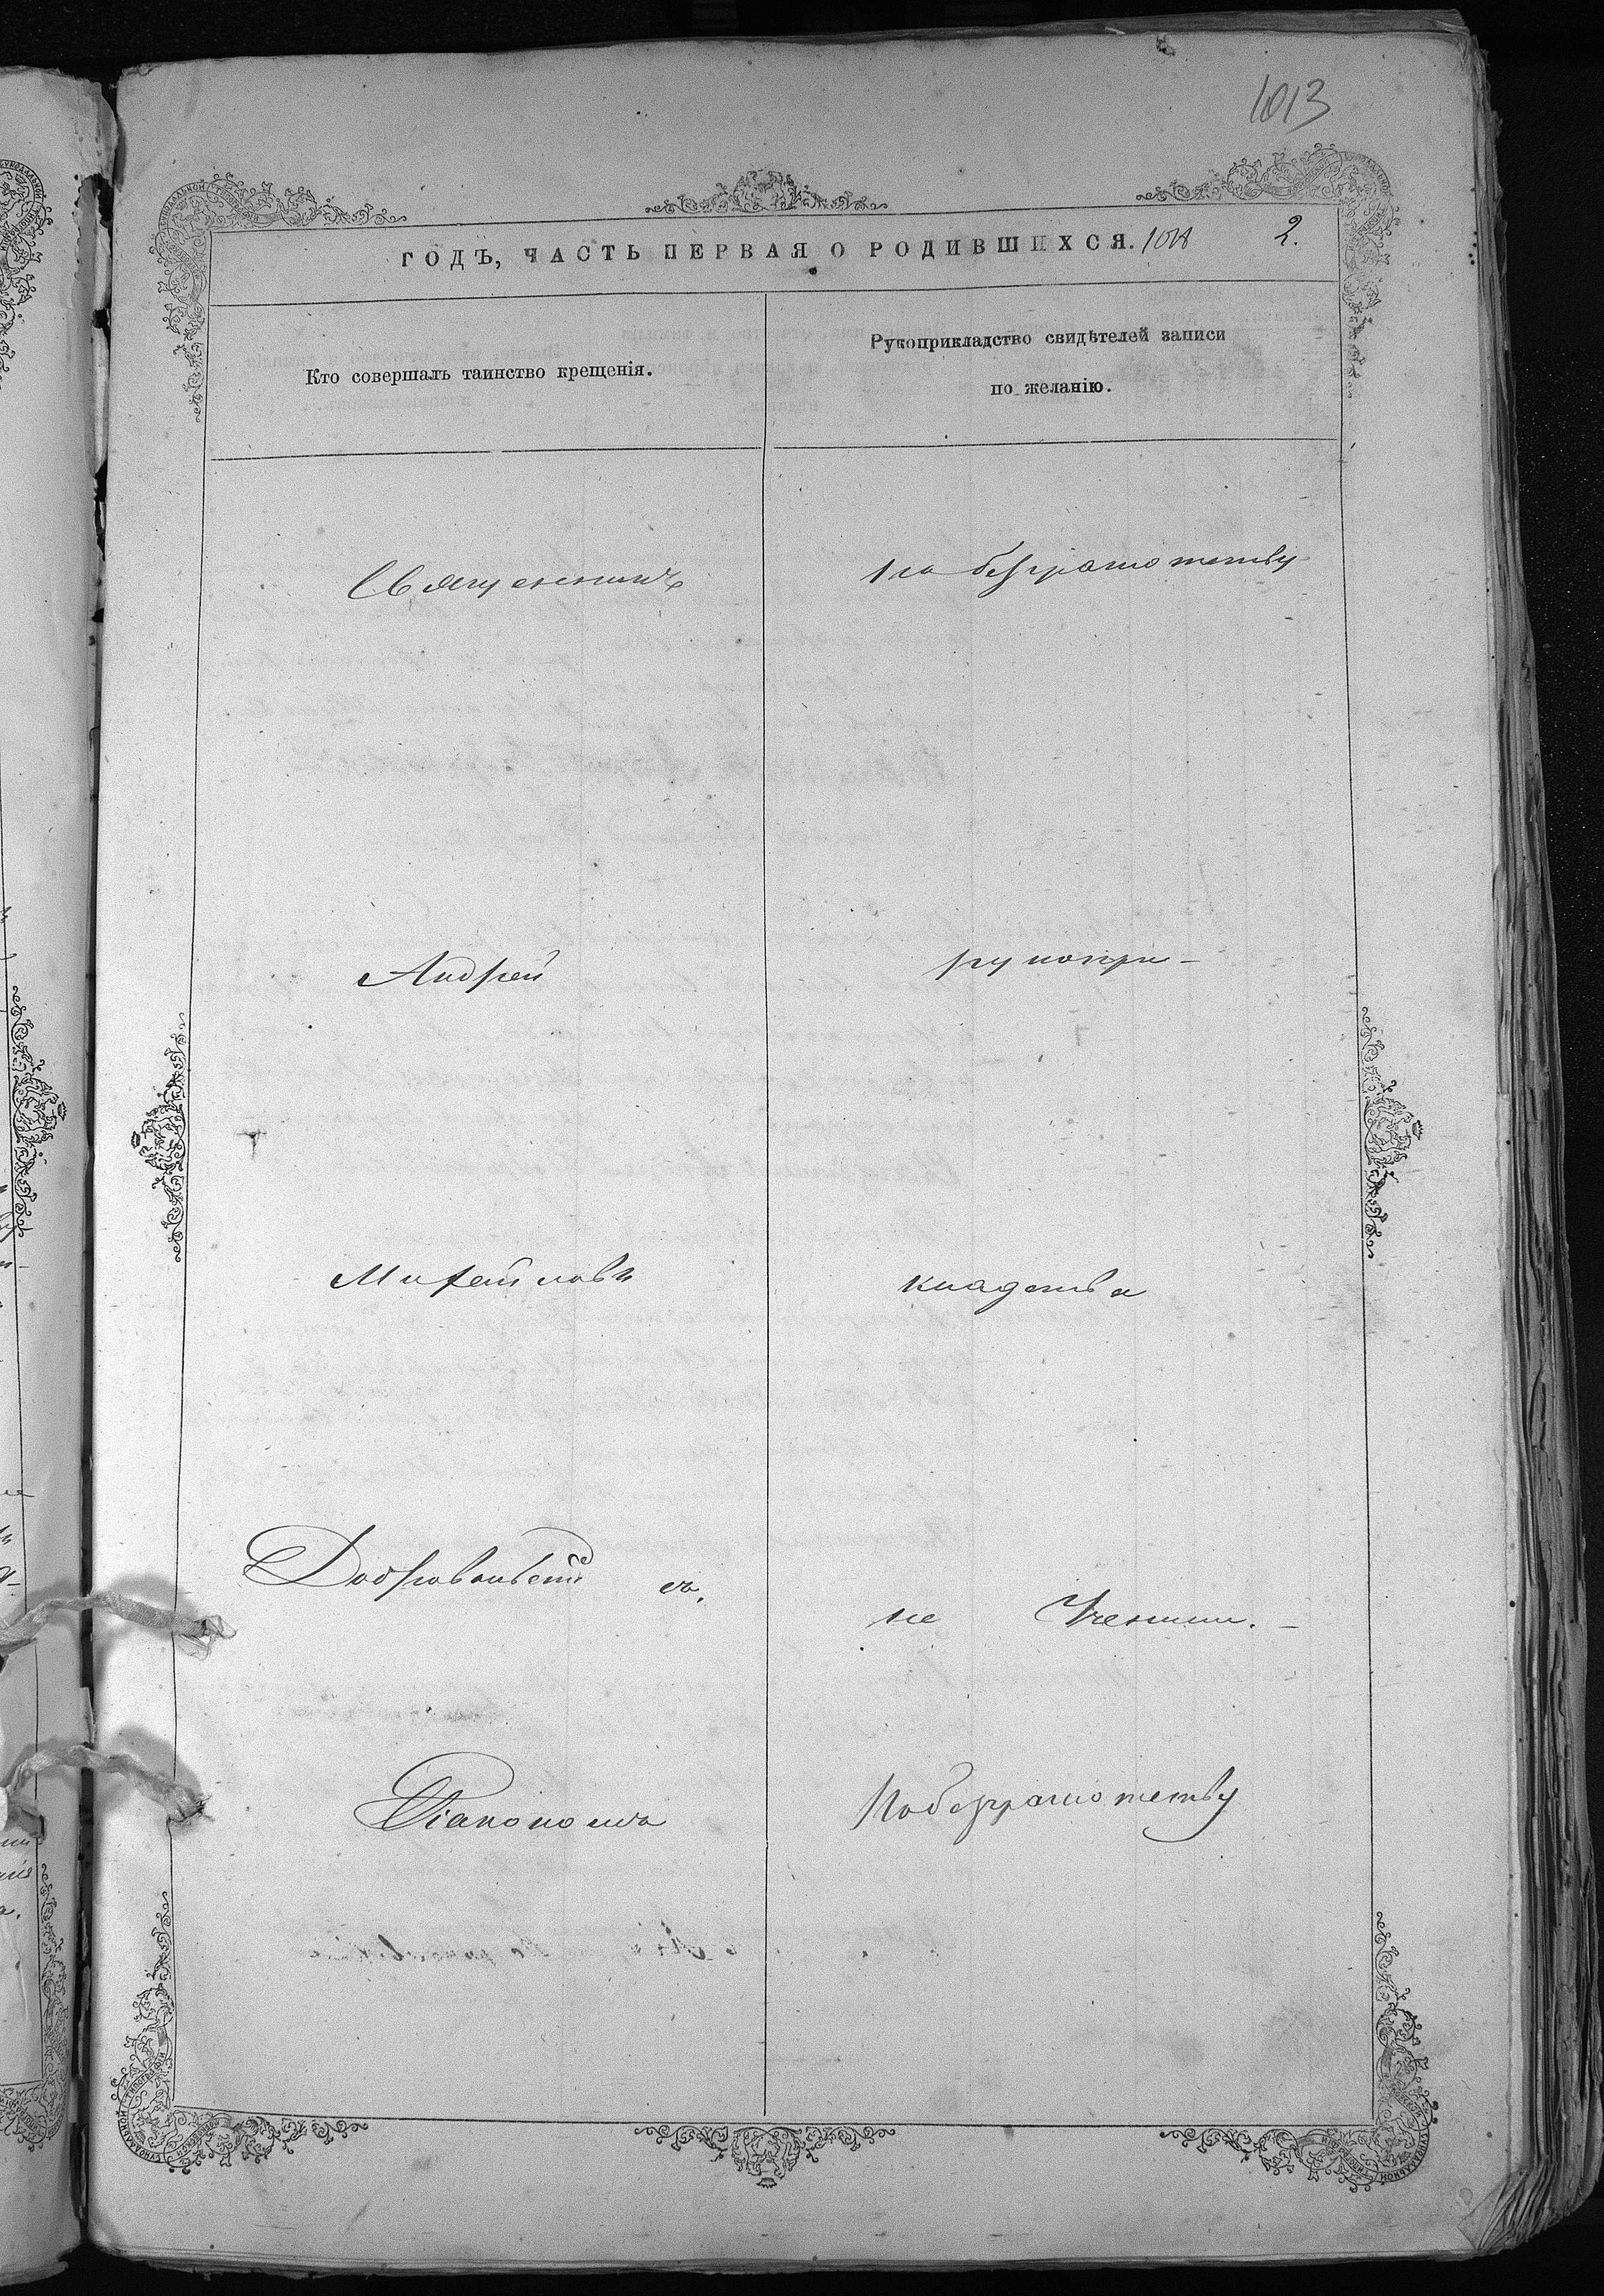 1013
ГОДЪ, ЧАСТЬ ПЕРВАЯ О РОДИВШИХСЯ. 1018 2.
Кто совершалъ таинство крещенія.
Рукоприкладство свидѣтелей записи
по желанію.
Священникъ
По безграмотству
Андрей
рукопри-
кладства
съ.
не
По безграмотству